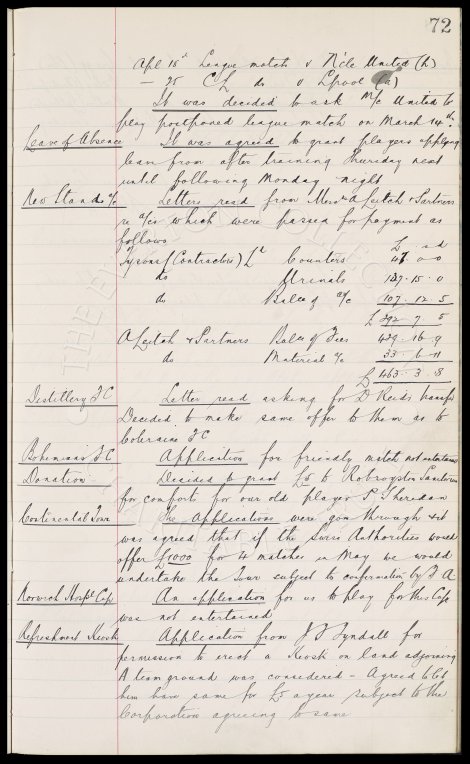 72
Apl 18th League match v N'cle United (h)
— 25 CL do v Lpool (a)
It was decided to ask M/c United to
play postponed league match on March 14th.
Leave of Absence It was agreed to grant players applying
leave from after training Thursday next
until following Monday night
New Stands a/c Letters read from Messrs A Leitch & Partners
re a/cs which were passed for payment as
follows £ s d
Tysons (Contractors) Ld Counters 47. 0. 0
do Urinals 137. 15. 0
do Balce of a/c 107. 12. 5
£ 292. 7. 5
A Leitch & Partners Balce of Fees 429. 16. 9
do Material &c 33. 6. 11
£ 463. 3. 8
Distillery FC Letter read asking for D Reids transfer
Decided to make same offer to them as to
Coleraine FC
Bohemians FC Application for friendly match not entertained
Donation Decided to grant £5 to Robroyston Sanatorium
for comforts for our old player P. Sheridan
Continental Tour The Applications were gone through & it
was agreed that if the Swiss Authorities would
offer £1000 for 4 matches in May we would
undertake the Tour subject to confirmation by F A
Norwich Hospl Cup An application for us to play for this Cup
was not entertained
Refreshment Kiosk Application from Tyndall for
permission to erect a Kiosk on land adjoining
A team ground was considered – Agreed to let
him have same for £5 a year subject to the
Corporation agreeing to same